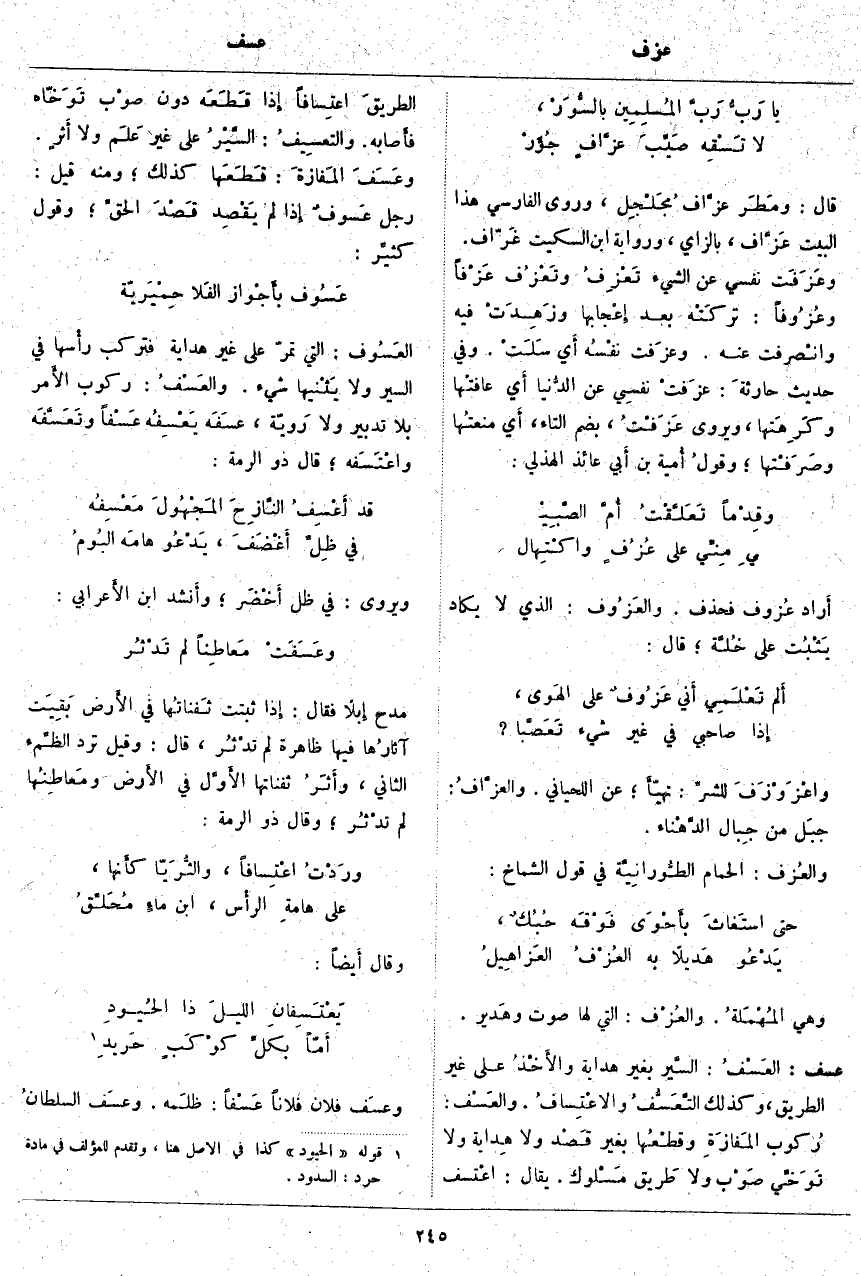 عزف
عسف
يا رَبُّ رَبَّ المُسلِمِين بالسُّوَرْ ،
لا تَسْقِه صَيِّبَ عزَّافٍ جُؤَرْ
قال : ومَطَر عزَّاف مُجَلْجِل ، وروى الفارسي هذا
البيت عَزَّاف ، بالزاي ، ورواية ابن السكيت غَرَّاف.
وعَزَفَت نفسي عن الشيء تَعْزِفُ وتَعْزُف عَزْفاً
وعُزُوفاً : تركَتْه بعد إعْجابها وزَهِدَتْ فيه
وانْصرفت عنه . وعزفَت نفسُه أي سلَتْ . وفي
حديث حارثةَ : عزفَتْ نفسي عن الدُّنيا أي عافَتْها
وكَرِهَتها ، ويروى عَزَفْتُ ، بضم التاء ، أي منعتُها
وصَرَفْتها ؛ وقولُ أُمية بن أبي عائذ الهذلي :
وقِدْماً تَعَلَّقْتُ أُمَّ الصَّبِيـ
يِ مِنِّي على عُزُفٍ واكْتِهال
أراد عُزوف فحذف . والعَزُوف : الذي لا يكاد
يَثْبُت على خُلَّة ؛ قال :
ألم تَعْلَمِي أني عَزُوفٌ على الهَوى ،
إذا صاحبي في غير شيء تَعَصَّبا ?
واعْزَوْزَفَ للشرّ : تهيّأ ؛ عن اللحياني . والعزَّافُ :
جبَل من جِبال الدَّهْناء .
والعُزف : الحمام الطُّورانِيَّة في قول الشماخ :
حتى استَغاثَ بأَحْوَى فَوْقَه حُبُكٌ ،
يَدْعُو هَديلًا به العُزْفُ العَزاهِيلُ
وهي المُهْمَلةُ . والعُزْف : التي لها صوت وهَدير .
عسف : العَسْفُ : السَّير بغير هداية والأَخْذُ على غير
الطريق، وكذلك التَّعَسُّفُ والاعْتِسافُ . والعَسْف :
رُكوب المَفازَةِ وقطعُها بغير قَصْد ولا هِداية ولا
تَوَخِّي صَوْب ولا طَريق مَسْلوك . يقال : اعْتَسف
الطريقَ اعتِسافاً إذا قَطَعَه دون صوْب تَوَخّاه
فأصابه. والتعسيفُ : السَّيْرُ على غير عَلَم ولا أثرٍ .
وعَسَفَ المَفازةَ : قَطَعَها كذلك ؛ ومنه قيل :
رجل عَسوفٌ إذا لم يَقْصِد قَصْدَ الحقّ ؛ وقول
كثيّر :
عَسُوف بأَجْواز الفَلا حِمْيَريّة
العَسُوف : التي تمرّ على غير هداية فتركَب رأْسها في
السير ولا يَثْنِيها شيء . والعَسْفُ : ركوب الأَمر
بلا تدبير ولا رَويّة ، عسفَه يَعْسِفُه عَسْفاً وتَعَسَّفَه
واعْتَسَفه ؛ قال ذو الرمة :
قد أَعْسِفُ النَّازِحَ المَجْهُولَ مَعْسِفُه
في ظِلِّ أَغْضَفَ ، يَدْعُو هامَه البُومُ
ويروى : في ظل أَخْضَر ؛ وأنشد ابن الأَعرابي :
وعَسَفَتْ مَعاطِناً لم تَدْثُر
مدح إبلًا فقال : إذا ثبتت ثَفِناتُها في الأَرض بَقِيَت
آثارُها فيها ظاهرة لم تَدْثُر ، قال : وقيل ترد الظِّمْء
الثاني ، وأَثَرُ ثفناتها الأَوَّل في الأَرض ومَعاطِنُها
لم تدْثُر ؛ وقال ذو الرمة :
وردْتُ اعْتِسافاً ، والثُّرَيّا كأَنها ،
على هامةِ الرأْس ، ابن ماءٍ مُحَلِّقُ
وقال أيضاً :
يَعْتَسِفانِ الليلَ ذا الحُيودِ
أَمّاً بكلِّ كوْكَبٍ حَريدِ١
وعسَف فلان فلاناً عَسْفاً : ظلَمه . وعسَف السلطانُ
١ قوله «الحيود» كذا في الاصل هنا ، وتقدم للمؤلف في مادة
حرد : السدود .
٢٤٥